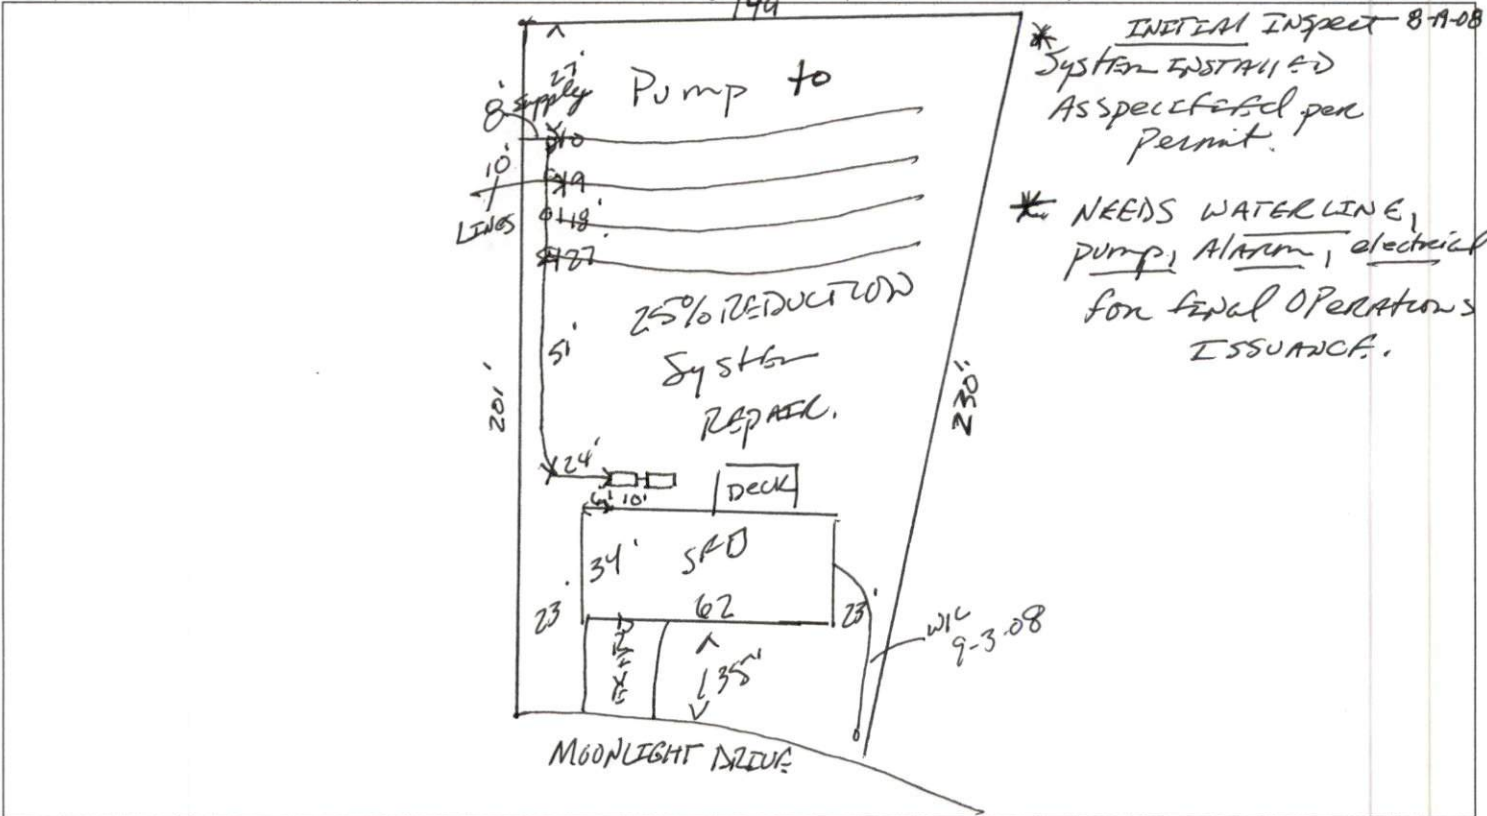 144
* INITIAL INSpect 8-19-08
System INSTAllED
AS specified per
Permit.
* NEEDS WATERLINE,
pump, AlARm, electrical
for final OPERATIONS
ISSUANCE.
27'
8' supply
Pump to
10'
LINES
9
18'
27'
25% REDUCTION
System
REPAIR.
51'
201'
230'
24'
6' 10'
DECK
34' SFD
23' 62 23'
DRIVE
35'
W/L
9-3-08
MOONLIGHT DRIVE